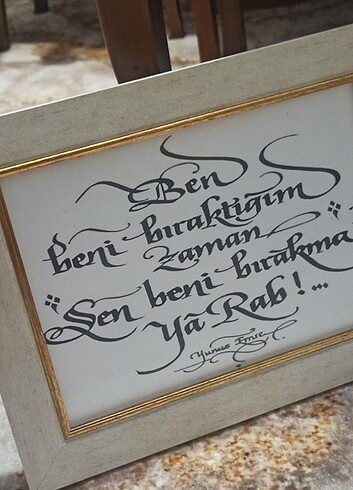 Ben
beni bıraktığım
zaman
Sen beni bırakma
Yâ Rab!...
Yunus Emre